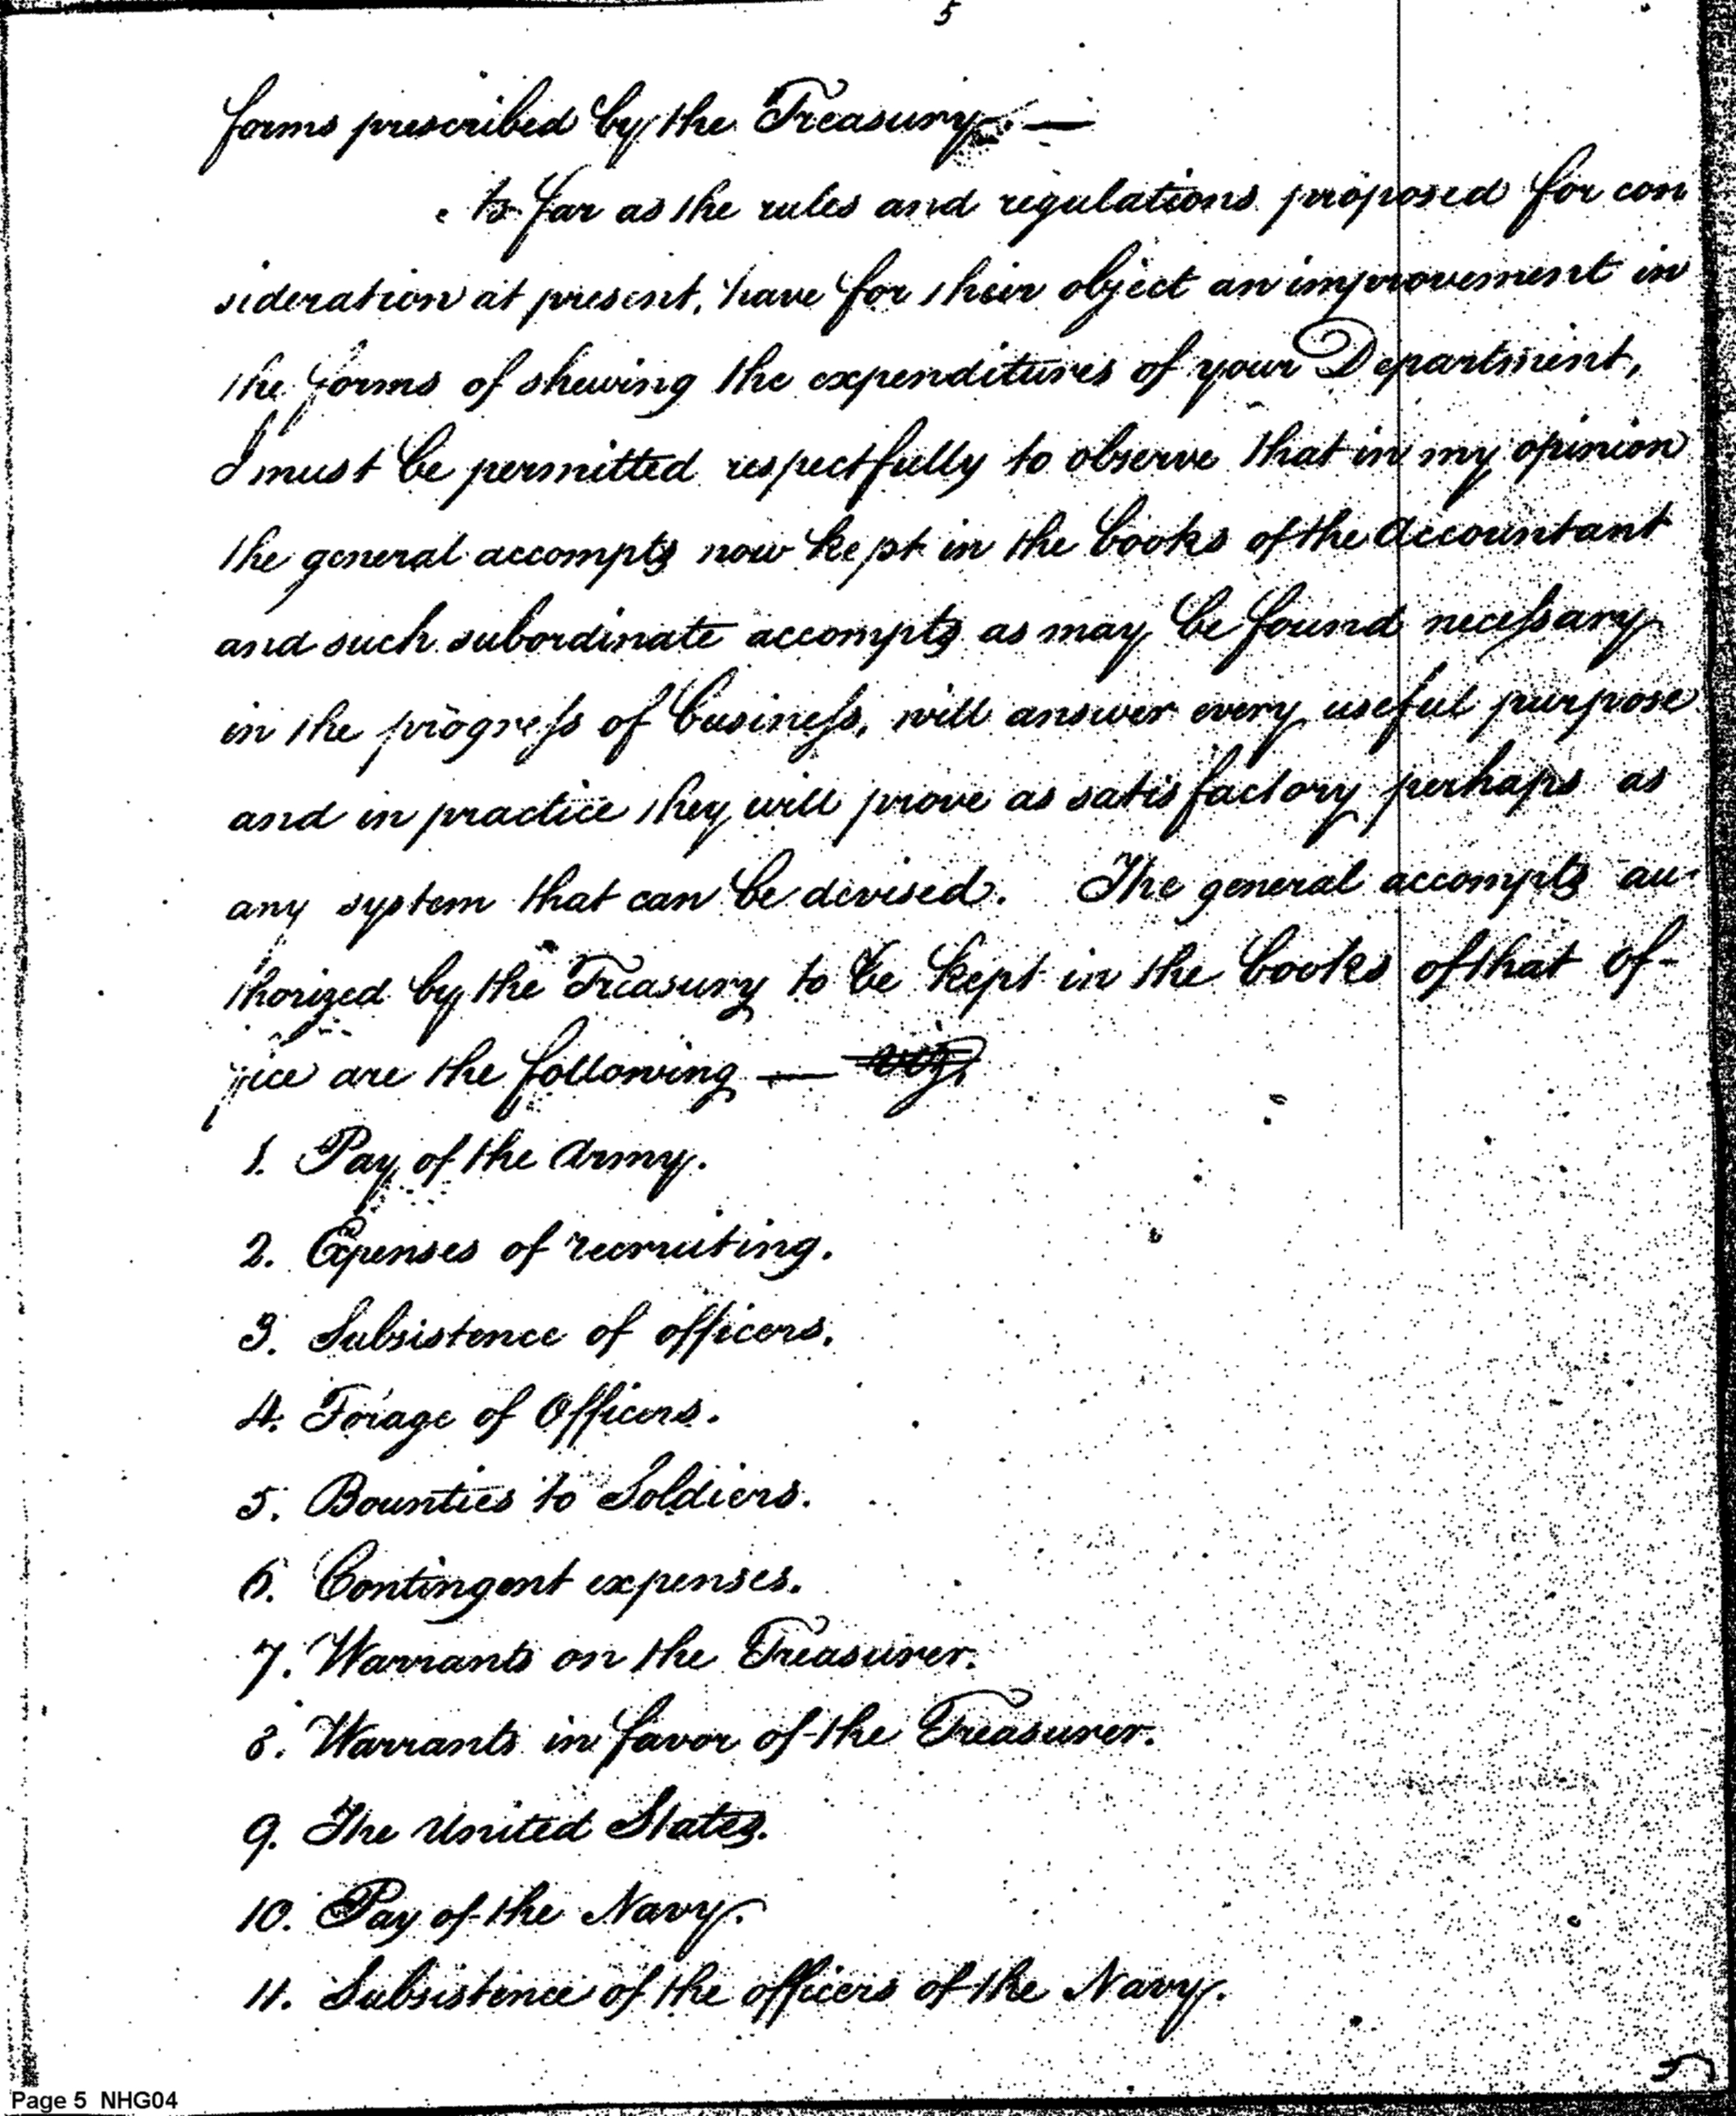 5
forms prescribed by the Treasury. —
So far as the rules and regulations proposed for con
sideration at present, have for their object an improvement in
the forms of shewing the expenditures of your Department,
I must be permitted respectfully to observe that in my opinion
the general accompts now kept in the books of the Accountant
and such subordinate accompts as may be found necessary
in the progress of business, will answer every useful purpose
and in practice they will prove as satisfactory perhaps as
any system that can be devised. The general accompts au-
thorized by the Treasury to be kept in the books of that of-
fice are the following — viz,
1. Pay of the Army.
2. Expenses of recruiting.
3. Subsistence of officers.
4. Forage of Officers.
5. Bounties to Soldiers.
6. Contingent expenses.
7. Warrants on the Treasurer.
8. Warrants in favor of the Treasurer.
9. The United States.
10. Pay of the Navy.
11. Subsistence of the officers of the Navy.
5
Page 5 NHG04